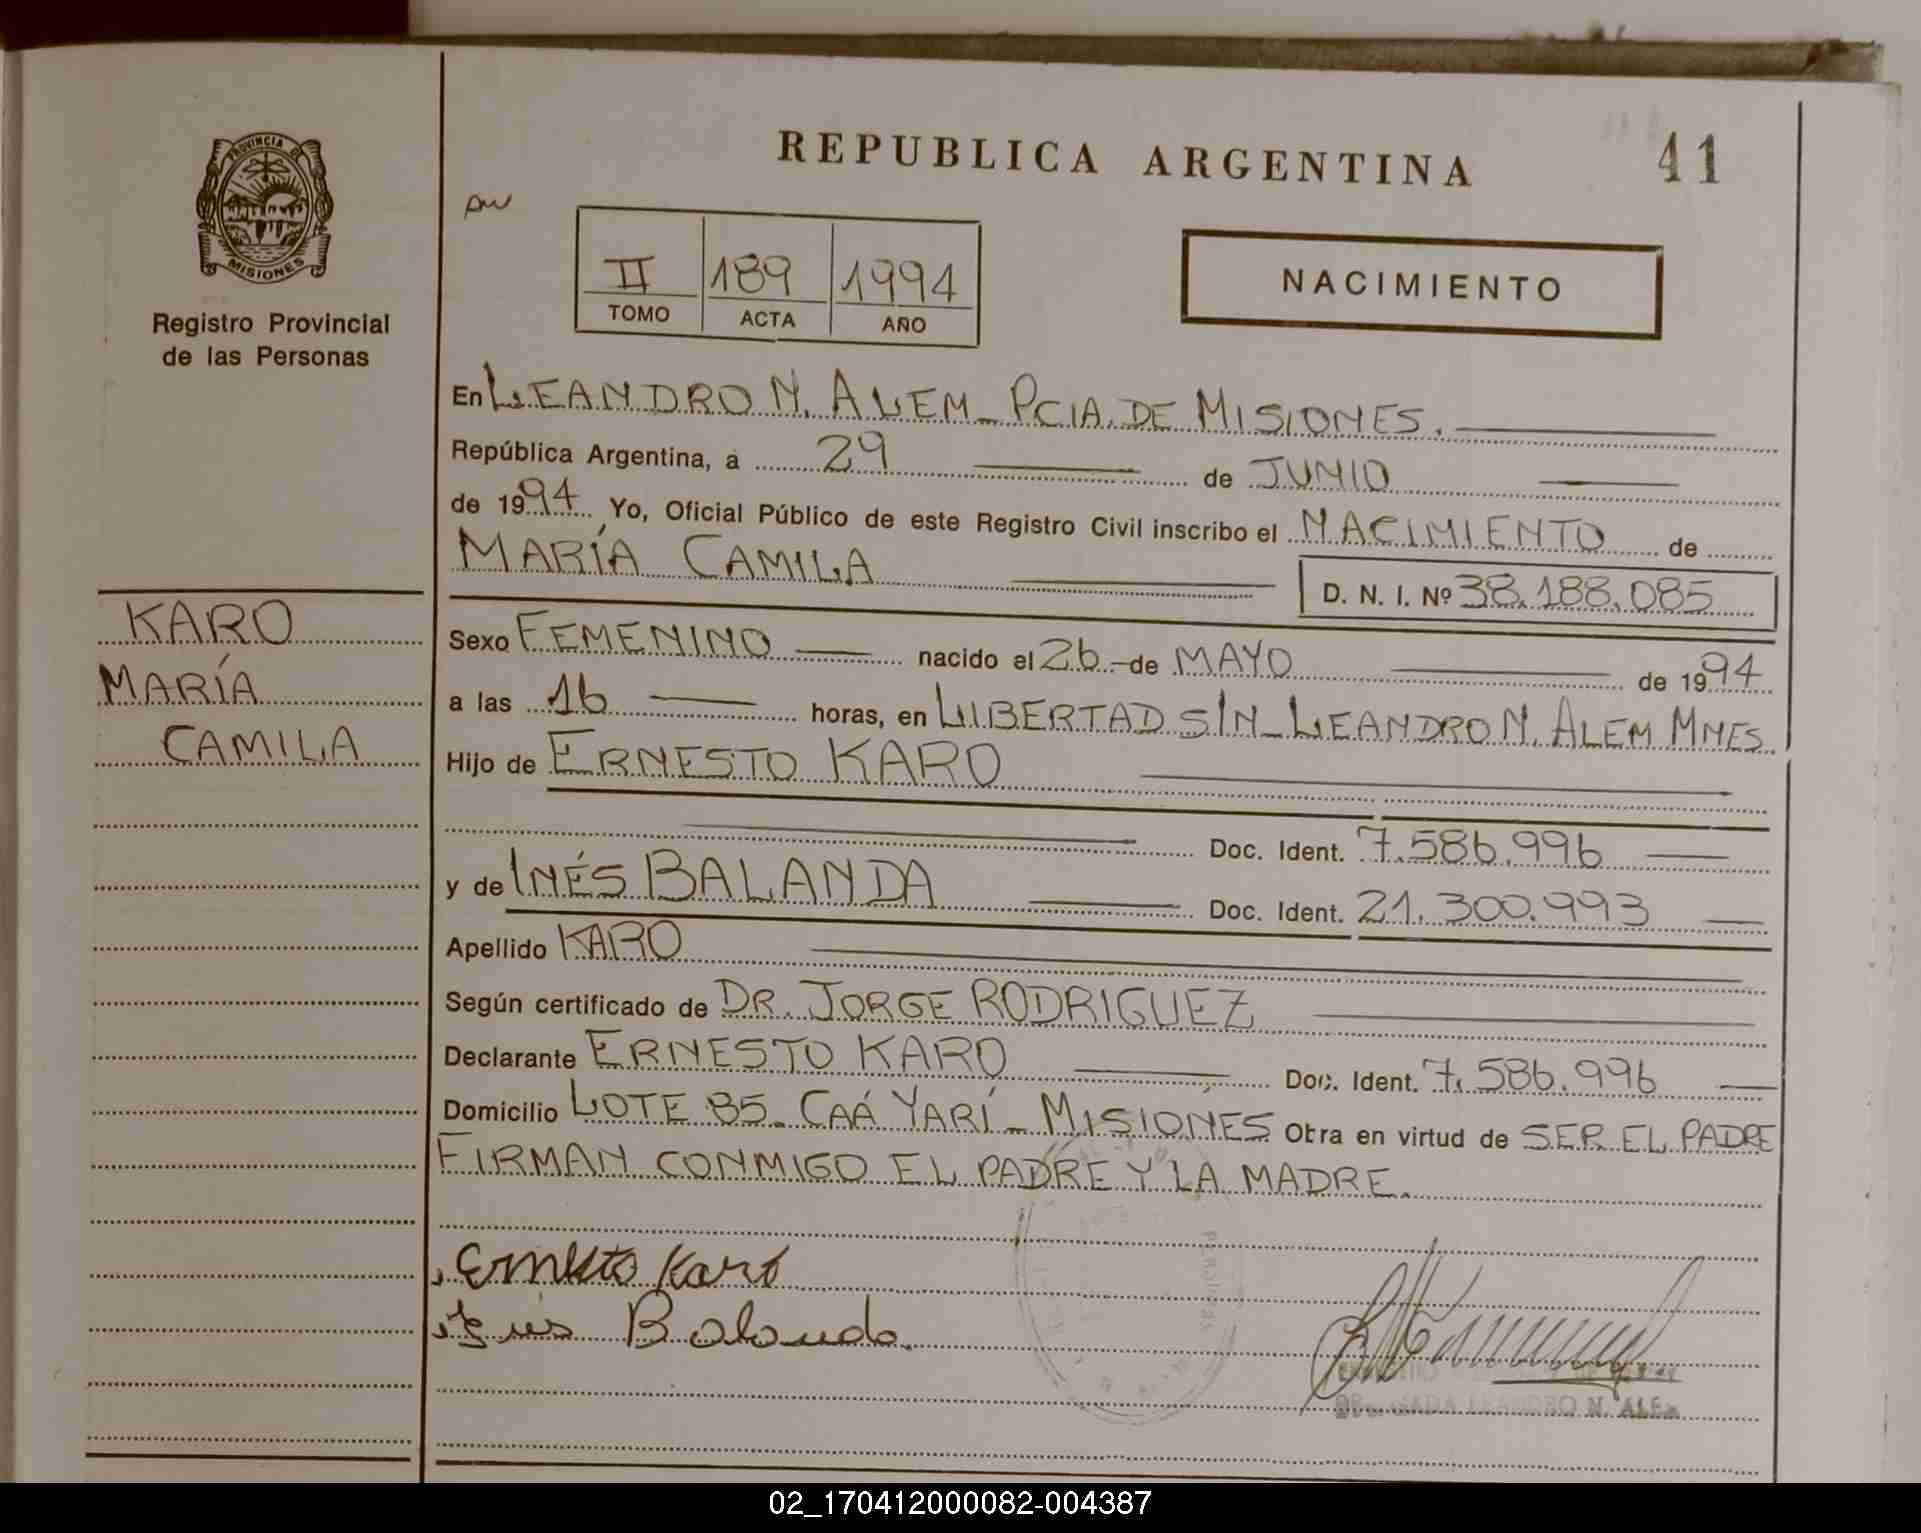 PROVINCIA DE
MISIONES
Registro Provincial
de las Personas
REPUBLICA ARGENTINA
41
II 189 1994
TOMO ACTA AÑO
NACIMIENTO
En LEANDRO N. ALEM_ PCIA. DE MISIONES.
República Argentina, a 29 de JUNIO
de 1994 Yo, Oficial Público de este Registro Civil inscribo el NACIMIENTO de
MARÍA CAMILA
D. N. I. Nº 38.188.085
KARO
MARÍA
CAMILA
Sexo FEMENINO nacido el 26 de MAYO de 1994
a las 16 horas, en LIBERTAD S/N_ LEANDRO N. ALEM MNES.
Hijo de ERNESTO KARO
Doc. Ident. 7.586.996
y de INÉS BALANDA Doc. Ident. 21.300.993
Apellido KARO
Según certificado de DR. JORGE RODRIGUEZ
Declarante ERNESTO KARO Doc. Ident. 7.586.996
Domicilio LOTE 85_ CAÁ YARÍ_ MISIONES Obra en virtud de SER EL PADRE
FIRMAN CONMIGO EL PADRE Y LA MADRE.
Ernesto Karo
Inés Balanda.
LEANDRO N. ALEM
02_170412000082-004387